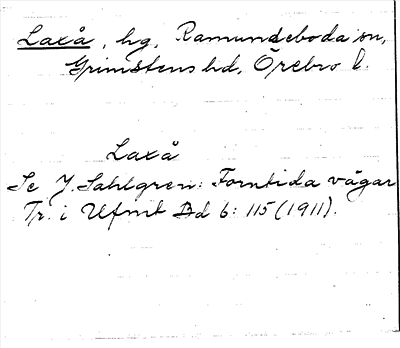 Laxå, hg, Ramundeboda sn,
Grimstens hd, Örebro l.
Laxå
Se J. Sahlgren: Forntida vägar
Tr. i Ufmt Bd 6: 115 (1911).